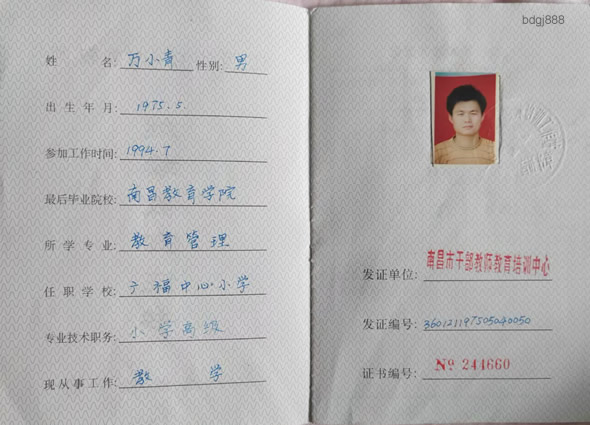 bdgj888
姓名: 万小青 性别: 男
出生年月: 1975.5.
参加工作时间: 1994.7
最后毕业院校: 南昌教育学院
所学专业: 教育管理
任职学校: 广福中心小学
专业技术职务: 小学高级
现从事工作: 教学
发证单位: 南昌市干部教师教育培训中心
发证编号: 360121197505040050
证书编号: № 244660